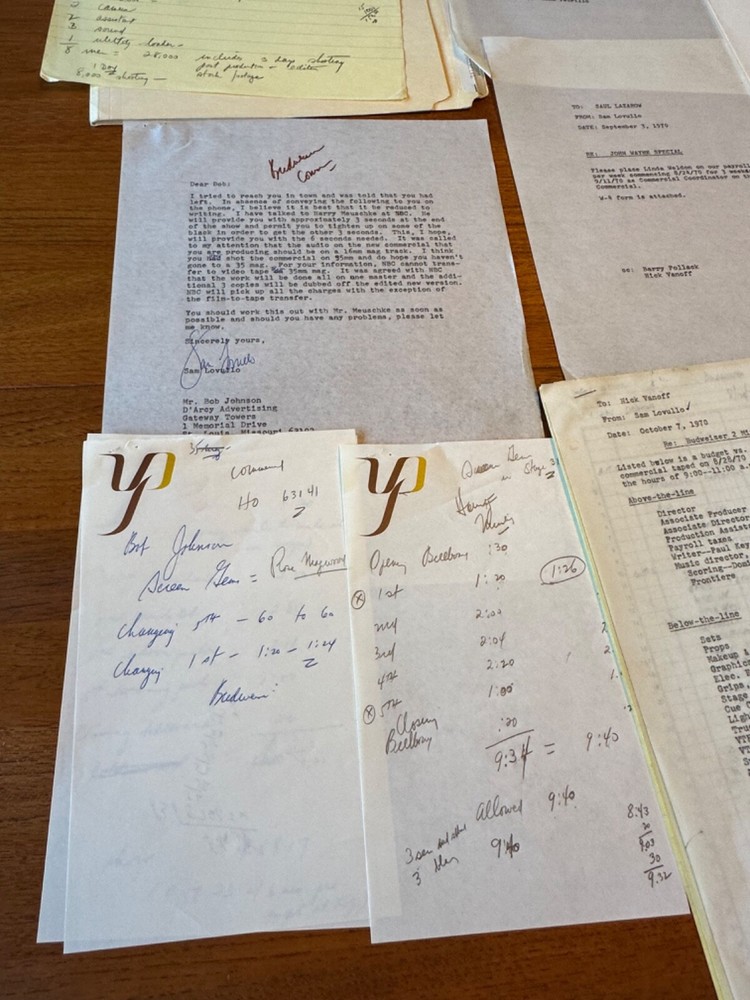 2 camera
2 assistant
2 sound
1 utility loader
8 men = 28,000 includes 2 days shooting
1 day post production - editor
8,000 shooting - stock footage
TO: SAUL LAZAROW
FROM: Sam Lovullo
DATE: September 3, 1970
RE: JOHN WAYNE SPECIAL
Please place Linda Waldon on our payroll
per week commencing 8/24/70 for 3 weeks
9/11/70 as Commercial Coordinator on
Commercial.
W-4 form is attached.
cc: Barry Pollack
Nick Vanoff
Budweiser
Comm
Dear Bob:
I tried to reach you in town and was told that you had
left. In absence of conveying the following to you on
the phone, I believe it is best that it be reduced to
writing. I have talked to Harry Meuschke at NBC. He
will provide you with approximately 3 seconds at the end
of the show and permit you to tighten up on some of the
black in order to get the other 3 seconds. This, I hope,
will provide you with the 6 seconds needed. It was called
to my attention that the audio on the new commercial that
you are producing should be on a 16mm mag track. I think
you had shot the commercial on 35mm and do hope you haven't
gone to a 35 mag. For your information, NBC cannot trans-
fer to video tape 35mm mag. It was agreed with NBC
that the work will be done all on one master and the addi-
tional 3 copies will be dubbed off the edited new version.
NBC will pick up all the charges with the exception of
the film-to-tape transfer.
You should work this out with Mr. Meuschke as soon as
possible and should you have any problems, please let
me know.
Sincerely yours,
Sam Lovullo
Sam Lovullo
Mr. Bob Johnson
D'Arcy Advertising
Gateway Towers
1 Memorial Drive
St. Louis, Missouri 63102
To: Nick Vanoff
From: Sam Lovullo
Date: October 7, 1970
Re: Budweiser 2 Mi
Listed below is a budget vs.
commercial taped on 8/28/70
the hours of 9:00--11:00 a.
Above-the-line
Director
Associate Producer
Associate Director
Production Assist
Payroll taxes
Writer--Paul Key
Music director,
Scoring--Domi
Frontiere
Below-the-line
Sets
Props
Makeup &
Graphic
Elec. E
Grips,
Stage
Cue C
Ligh
Truc
VTR
yp
Comment
HO 63141
2
Bob Johnson
Screen Gems =
Changing 5th - 60 to 60
Changing 1st - 1:20 - 1:24
Budweiser
yp
Screen Gems
Opening Billboard :30
1st 1:20 1:26
2nd 2:00
3rd 2:04
4th 2:20
5th 1:00
Closing
Billboard :20
9:34 = 9:40
Allowed 9:40
9:40
8:43
20
9:03
30
9:32